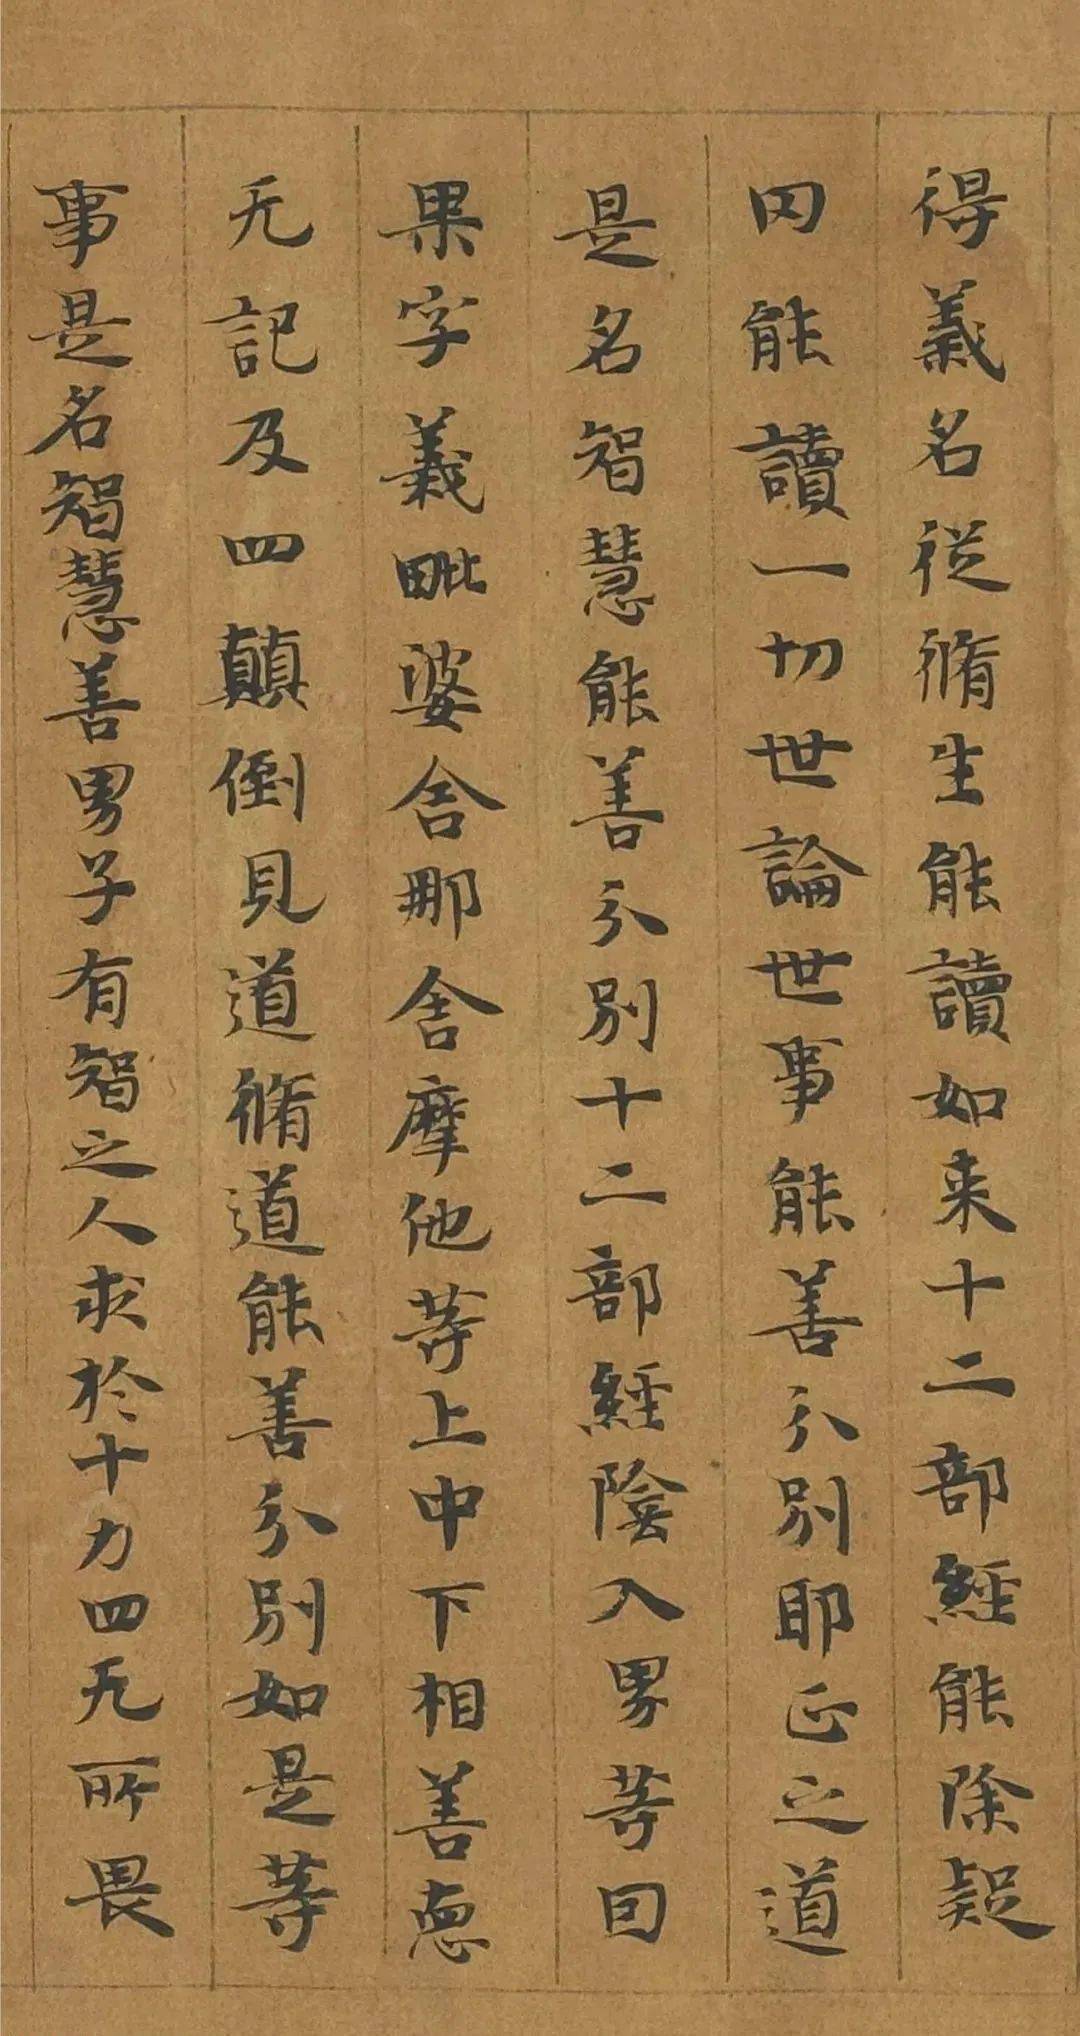 得義名從脩生能讀如来十二部經能除疑
因能讀一切世論世事能善分別耶正之道
是名智慧能善分別十二部經陰入界等因
果字義毗婆舍那舍摩他等上中下相善惡
无記及四顛倒見道脩道能善分別如是等
事是名智慧善男子有智之人求於十力四无所畏